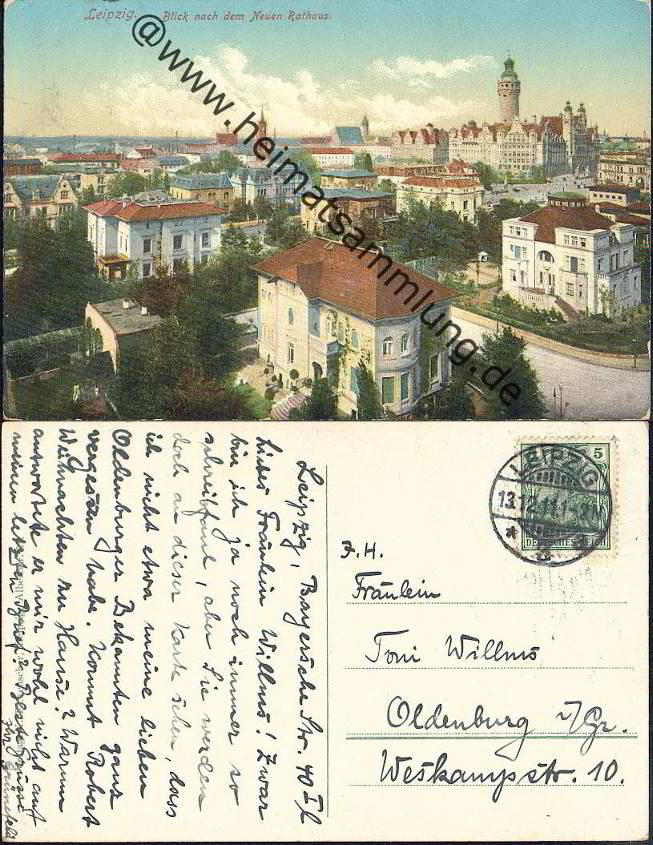 Leipzig. Blick nach dem Neuen Rathaus.
@www.heimatsammlung.de
LEIPZIG
13.12.11.
5
DEUTSCHES REICH
F. H.
Fräulein
Toni Willms
Oldenburg i/Gr.
Weskampstr. 10.
Leipzig, Bayersche Str. 40 II
Liebes Fräulein Willms! Zwar
bin ich ja noch immer so
schreibfaul, aber Sie werden
doch an dieser Karte sehen, dass
ich nicht etwa meine lieben
Oldenburger Bekannten ganz
vergessen habe. Kommt Robert
Weihnachten zu Hause? Warum
antwortete er mir wohl nicht auf
meinen letzten Brief? Beste Grüsse
Ihr